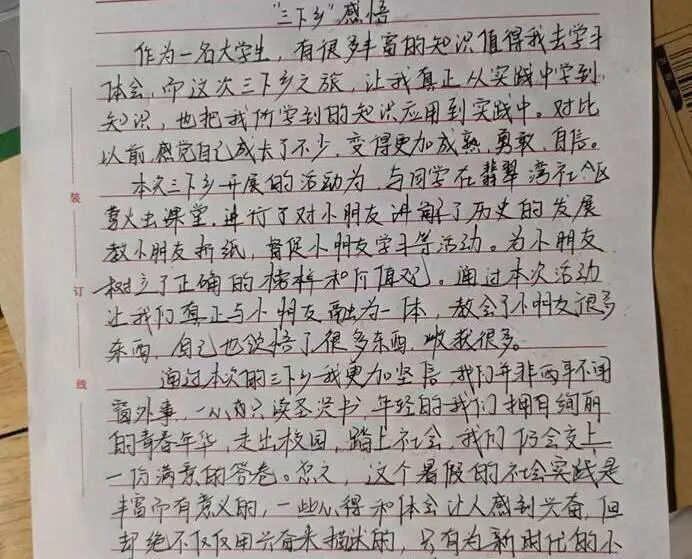 “三下乡”感悟
作为一名大学生，有很多丰富的知识值得我去学习
体会，而这次三下乡之旅，让我真正从实践中学到
知识，也把我所学到的知识应用到实践中。对比
以前，感觉自己成长了不少，变得更加成熟，勇敢，自信。
本次三下乡开展的活动为，与同学在翡翠湾社区
萤火虫课堂，进行了对小朋友讲解了历史的发展
教小朋友折纸，督促小朋友学习等活动。为小朋友
树立了正确的榜样和价值观。通过本次活动
让我们真正与小朋友融为一体，教会了小朋友很多
东西，自己也领悟了很多东西，收获很多。
通过本次的三下乡我更加坚信，我们并非两耳不闻
窗外事，一心只读圣贤书，年轻的我们拥有绚丽
的青春年华，走出校园，踏上社会，我们仍会交上
一份满意的答卷。总之，这个暑假的社会实践是
丰富而有意义的，一些心得和体会让人感到兴奋，但
却绝不仅仅用兴奋来描述的，只有为新时代的小
装
订
线